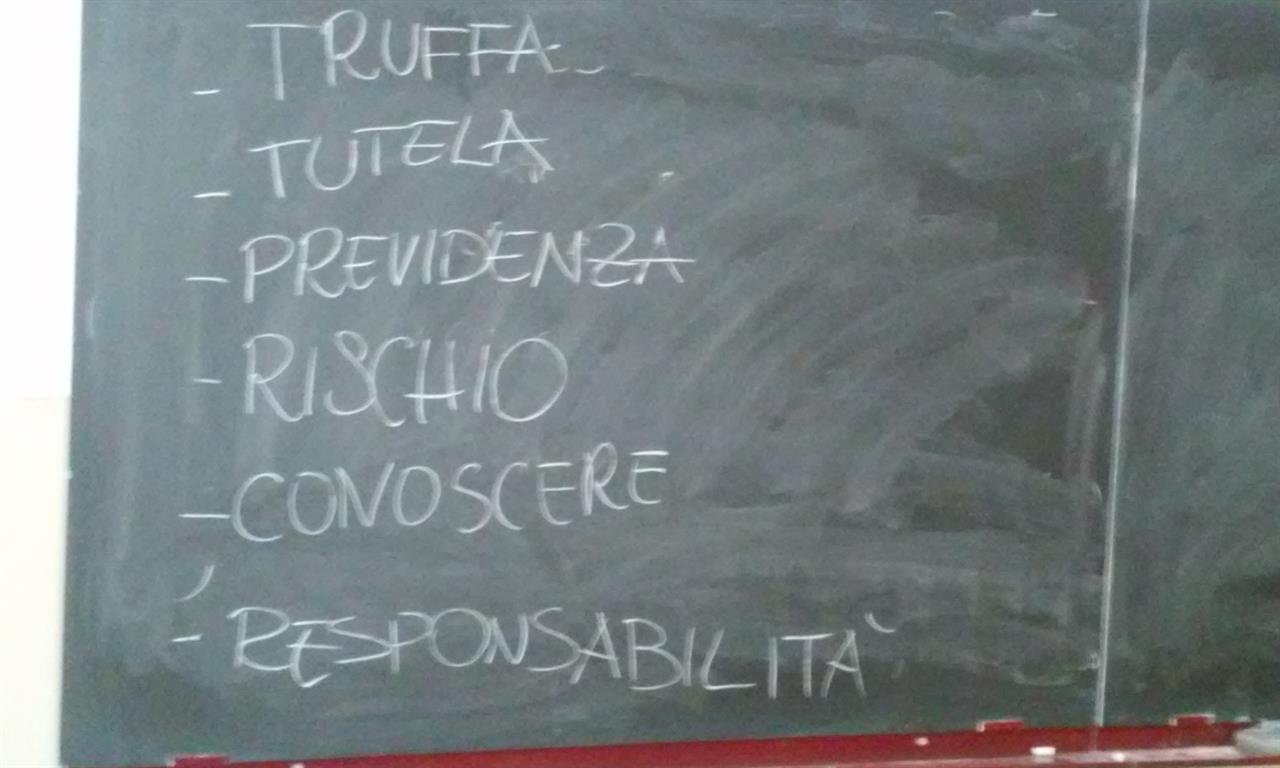 - TRUFFA
- TUTELA
- PREVIDENZA
- RISCHIO
- CONOSCERE
- RESPONSABILITA`